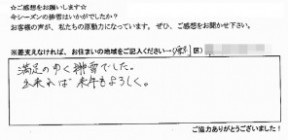 ☆ご感想をお願いします☆
今シーズンの排雪はいかがでしたか?
お客様の声が、私たちの原動力になっています。ぜひ、ご感想をお聞かせ下さい。
※差支えなければ、お住まいの地域をご記入ください→( 区)
満足のゆく排雪でした。
出来れば来年もよろしく。
ご協力ありがとうございました!